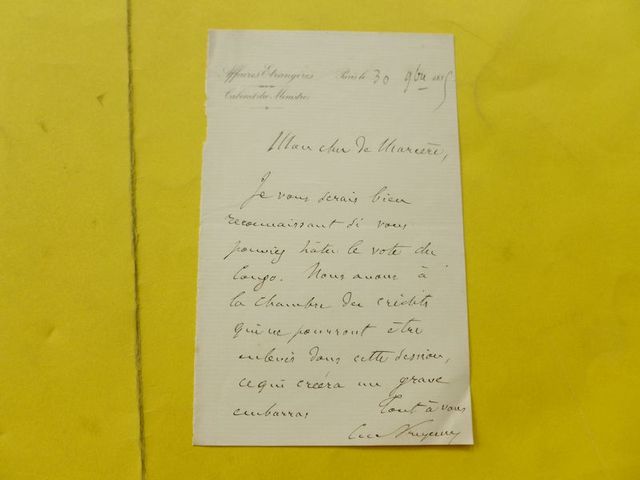 Affaires Etrangères Paris le 30 9bre 1885
Cabinet du Ministre
Mon cher de Marcère,
Je vous serais bien
reconnaissant si vous
pouviez hâter le vote du
Congo. Nous avons à
la chambre des crédits
qui ne pourront être
enlevés dans cette session,
ce qui créera un grave
embarras Tout à vous